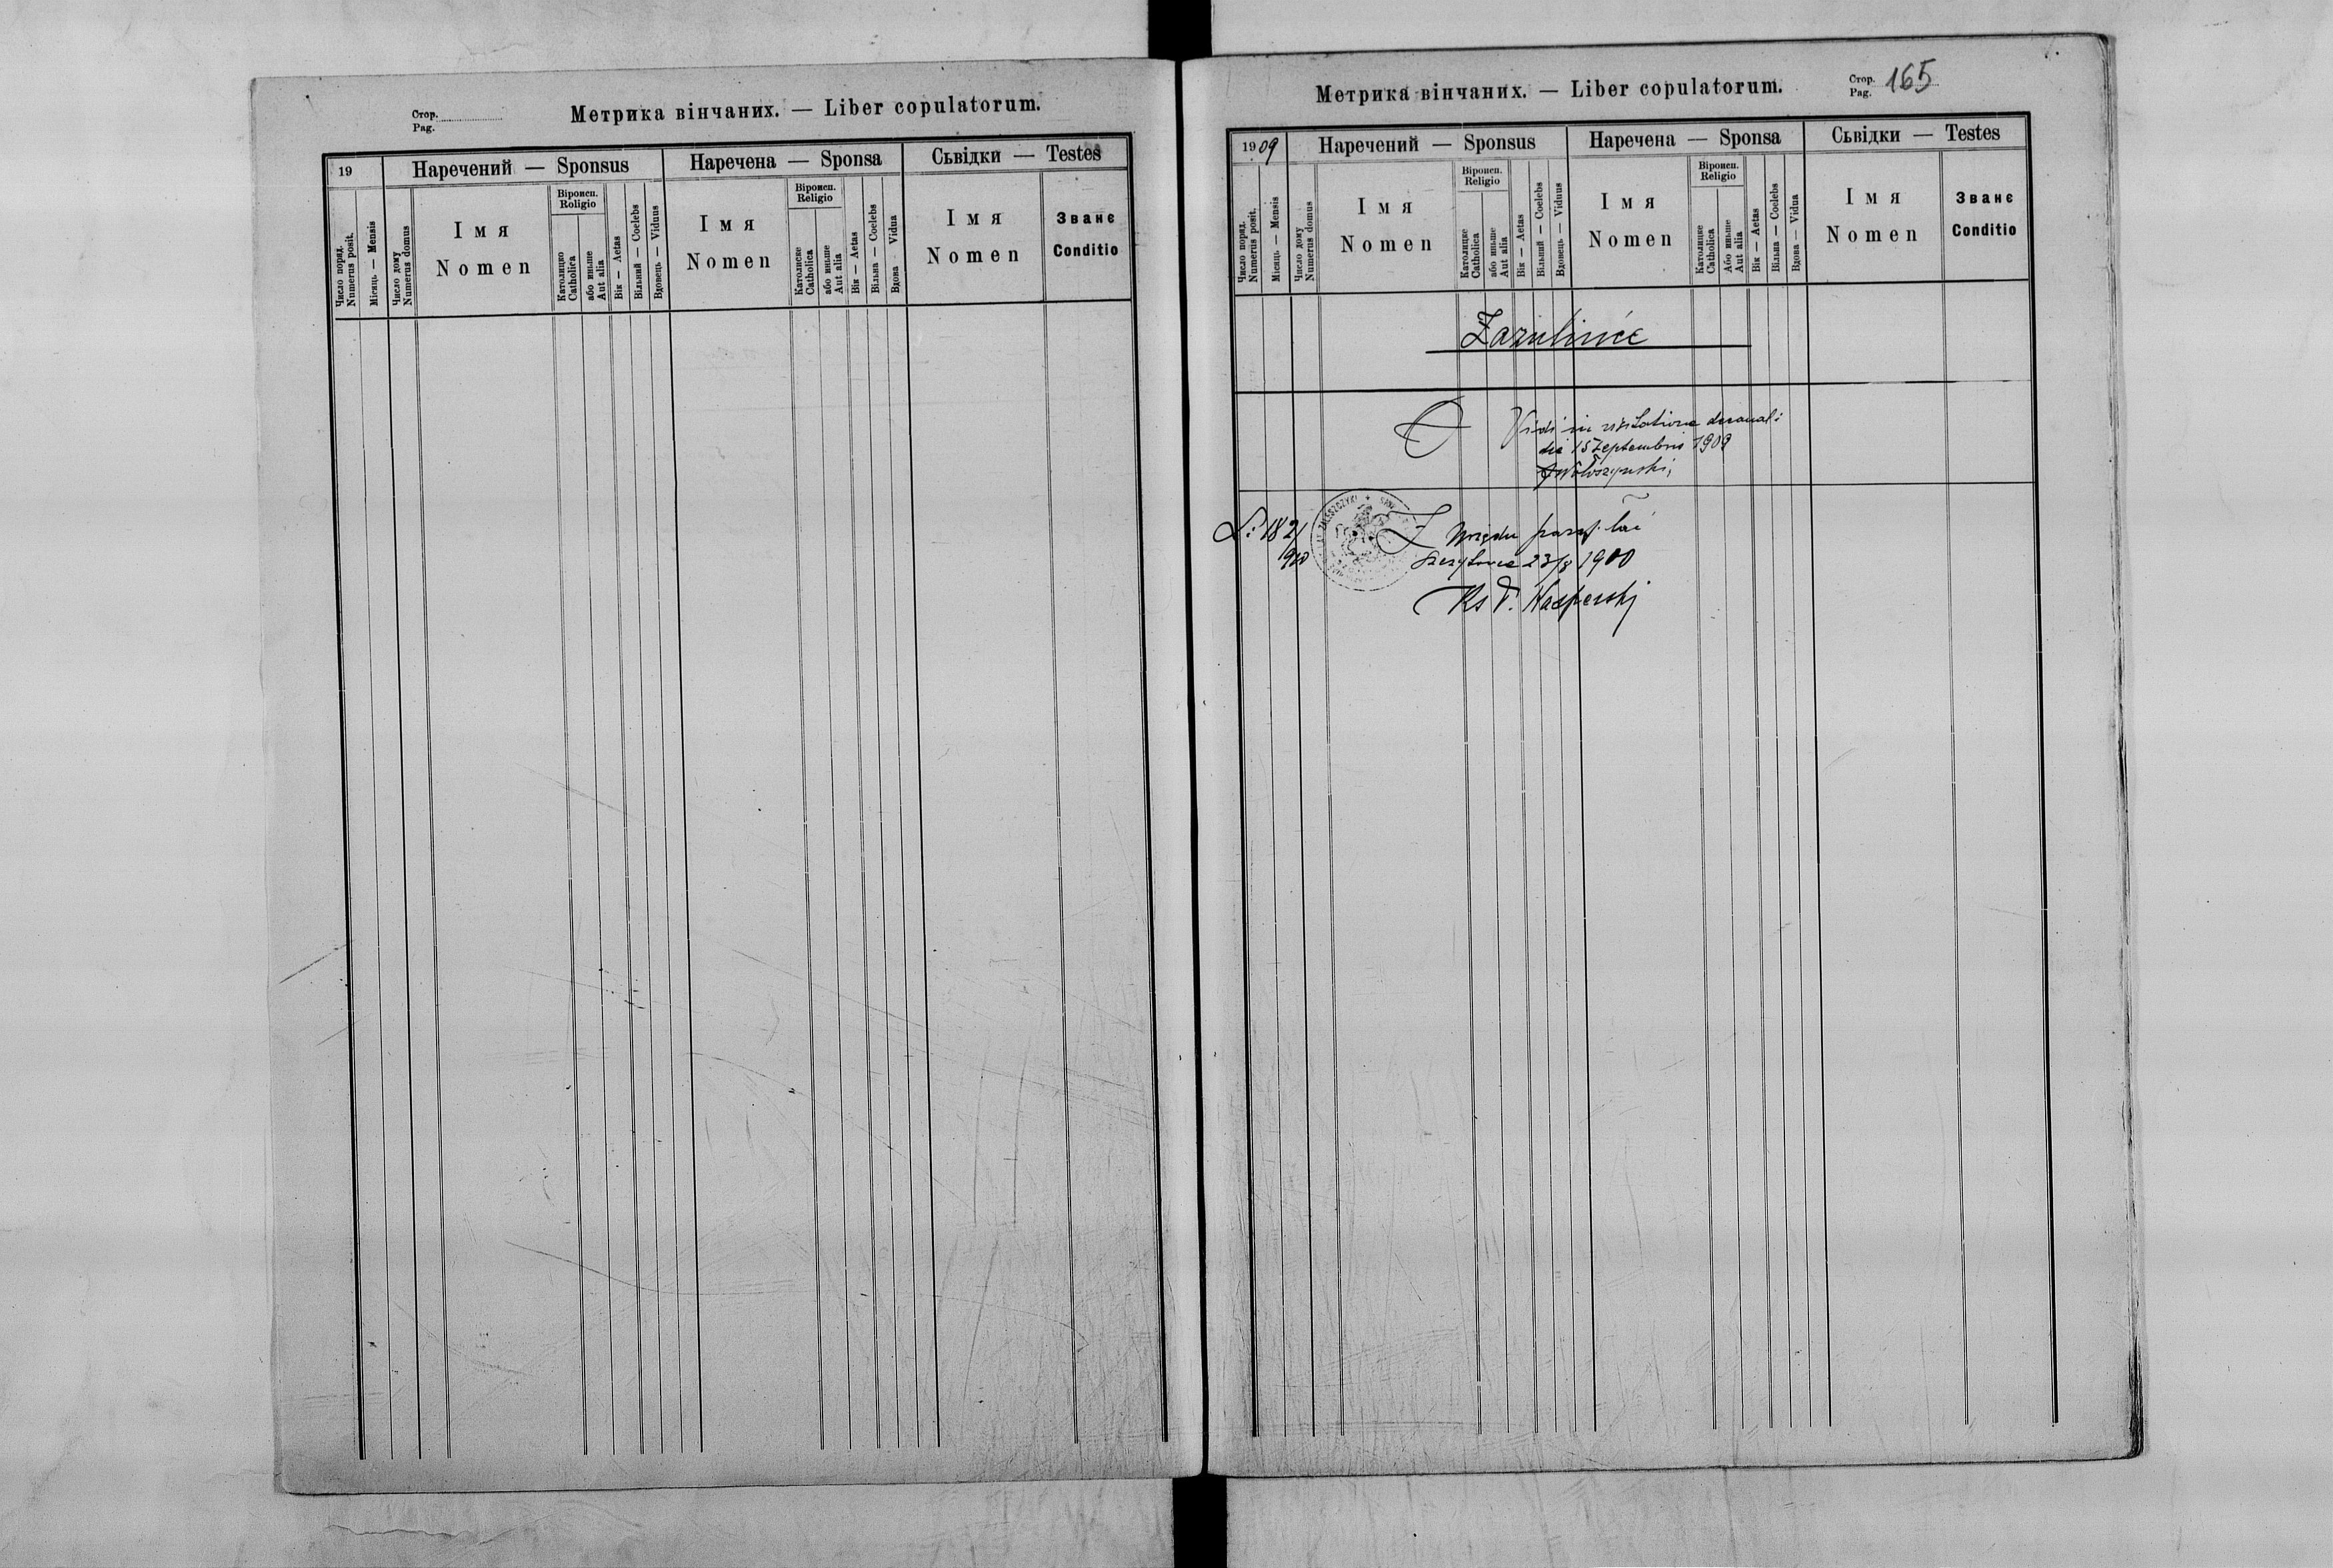 Стор.
Pag.
Метрика вінчаних. — Liber copulatorum.
19
Наречений — Sponsus
Наречена — Sponsa
Сьвідки — Testes
Число поряд.
Numerus posit.
Місяць — Mensis
Число дому
Numerus domus
Імя
Nomen
Віроисп.
Roligio
Католицко
Catholica
або иньше
Aut alia
Вік — Aetas
Вільний — Coelebs
Вдовець — Viduus
Імя
Nomen
Віроисп.
Religio
Католиске
Catholica
або иньше
Aut alia
Вік — Aetas
Вільна — Coelebs
Вдова Vidua
Імя
Nomen
Званє
Conditio
Метрика вінчаних. — Liber copulatorum.
Стор.
Pag. 165
1909
Наречений — Sponsus
Наречена — Sponsa
Сьвідки — Testes
Число поряд.
Numerus posit.
Місяць — Mensis
Число дому
Numerus domus
Імя
Nomen
Віроисп.
Religio
Католицке
Catholica
або иньше
Aut alia
Вік — Aetas
Вільний — Coelebs
Вдовець — Viduus
Імя
Nomen
Віроисп.
Religio
Католицке
Catholica
Або иньше
Aut alia
Вік — Aetas
Вільна — Coelebs
Вдова — Vidua
Імя
Nomen
Званє
Conditio
Zazulińce
Vidi in visitatione decanali
die 15 Septembris 1909
L: 182/
910
Z Urzędu paraf. łać
23/8 1900
Ks F. Kasperski